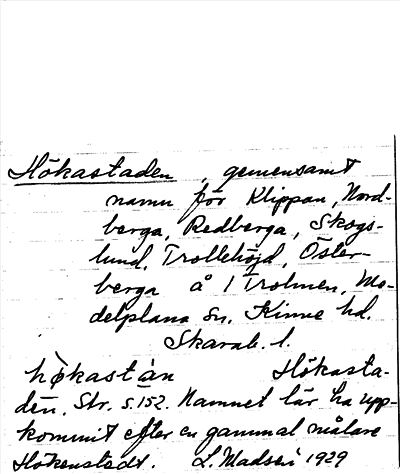 Hökastaden, gemensamt
namn för Klippan, Nord-
berga, Redberga, Skogs-
lund, Trollehöjd, Öster-
berga å 1/2 Trolmen, Me-
delplana sn, Kinne hd.
Skarab. l.
hökastàn Hökasta-
den, Str. s. 152. Namnet lär ha upp-
kommit efter en gammal målare
Hökenstedt. L. Madsén 1929